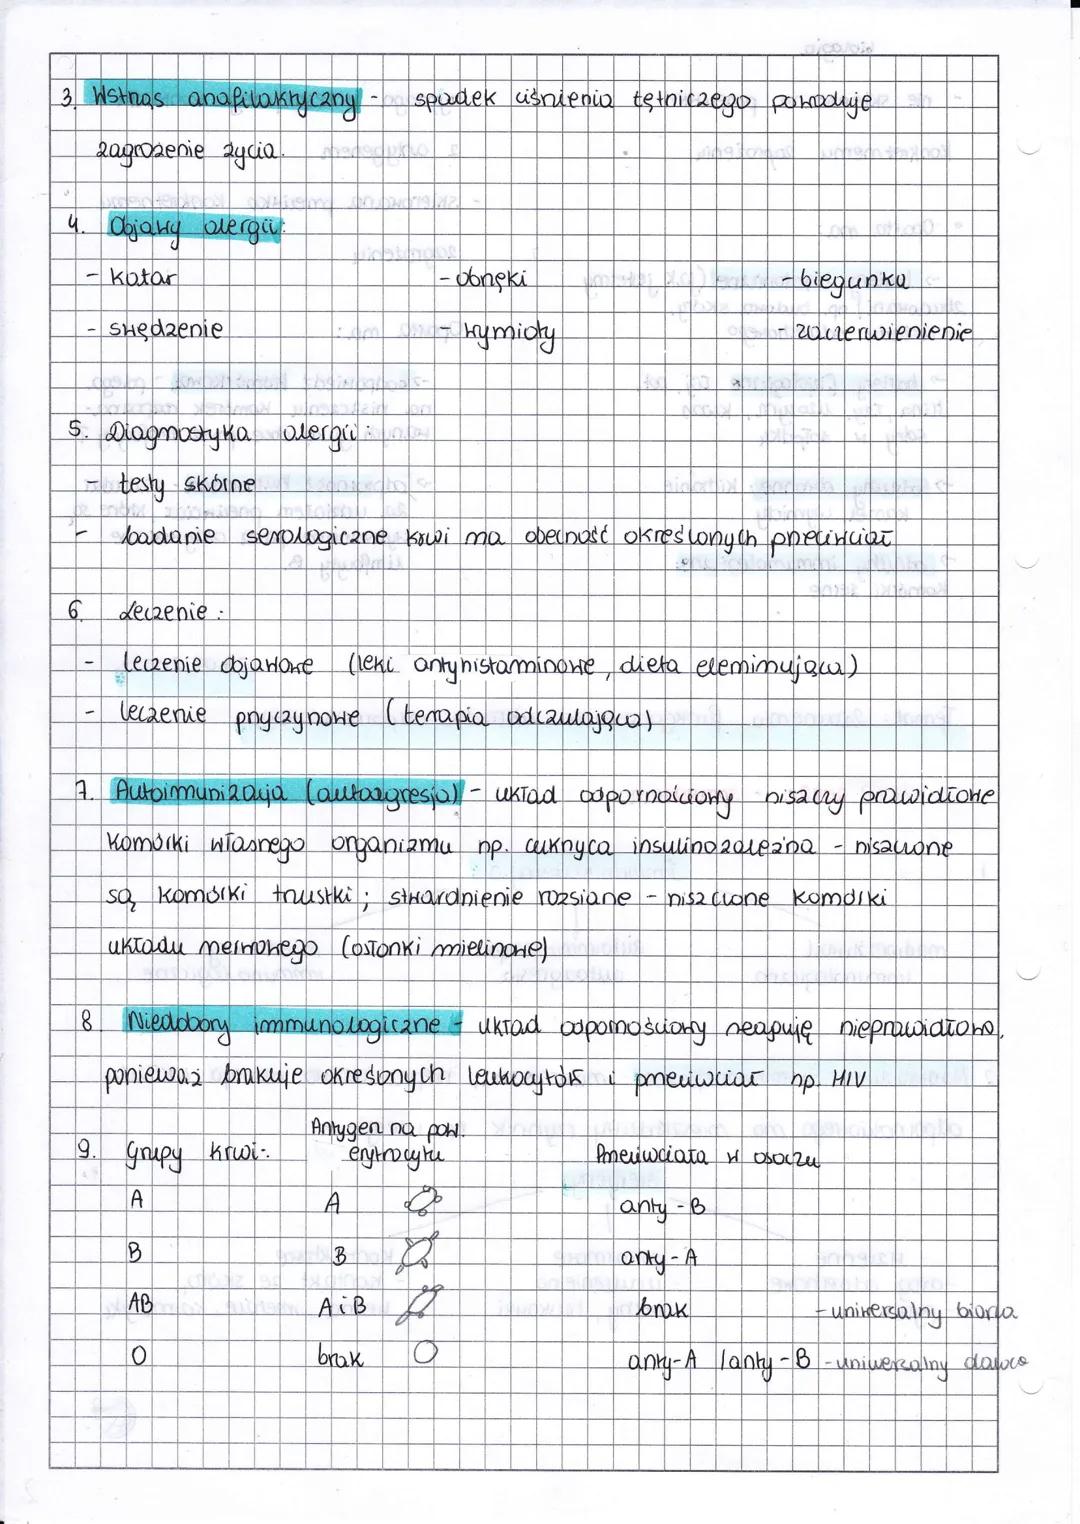 3. Wstrząs anafilaktyczny - spadek ciśnienia tętniczego powoduje
zagrożenie życia.
4. Objawy alergii:
- katar - obrzęki - biegunka
- swędzenie - wymioty - zaczerwienienie
5. Diagnostyka alergii:
- testy skórne
- badanie serologiczne krwi na obecność określonych przeciwciał
6. Leczenie:
- leczenie objawowe (leki antyhistaminowe, dieta eleminująca)
- leczenie przyczynowe (terapia odczulająca)
7. Autoimmunizacja (autoagresja) - układ odpornościowy niszczy prawidłowe
komórki własnego organizmu np. cukrzyca insulinozależna - niszczone
są komórki trzustki; stwardnienie rozsiane - niszczone komórki
układu nerwowego (osłonki mielinowe)
8. Niedobory immunologiczne - układ odpornościowy reaguje nieprawidłowo,
ponieważ brakuje określonych leukocytów i przeciwciał np. HIV
9. Grupy krwi: Antygen na pow. erytrocytu Przeciwciała w osoczu
A A anty - B
B B anty - A
AB A i B brak - uniwersalny biorca
O brak anty-A / anty-B - uniwersalny dawca